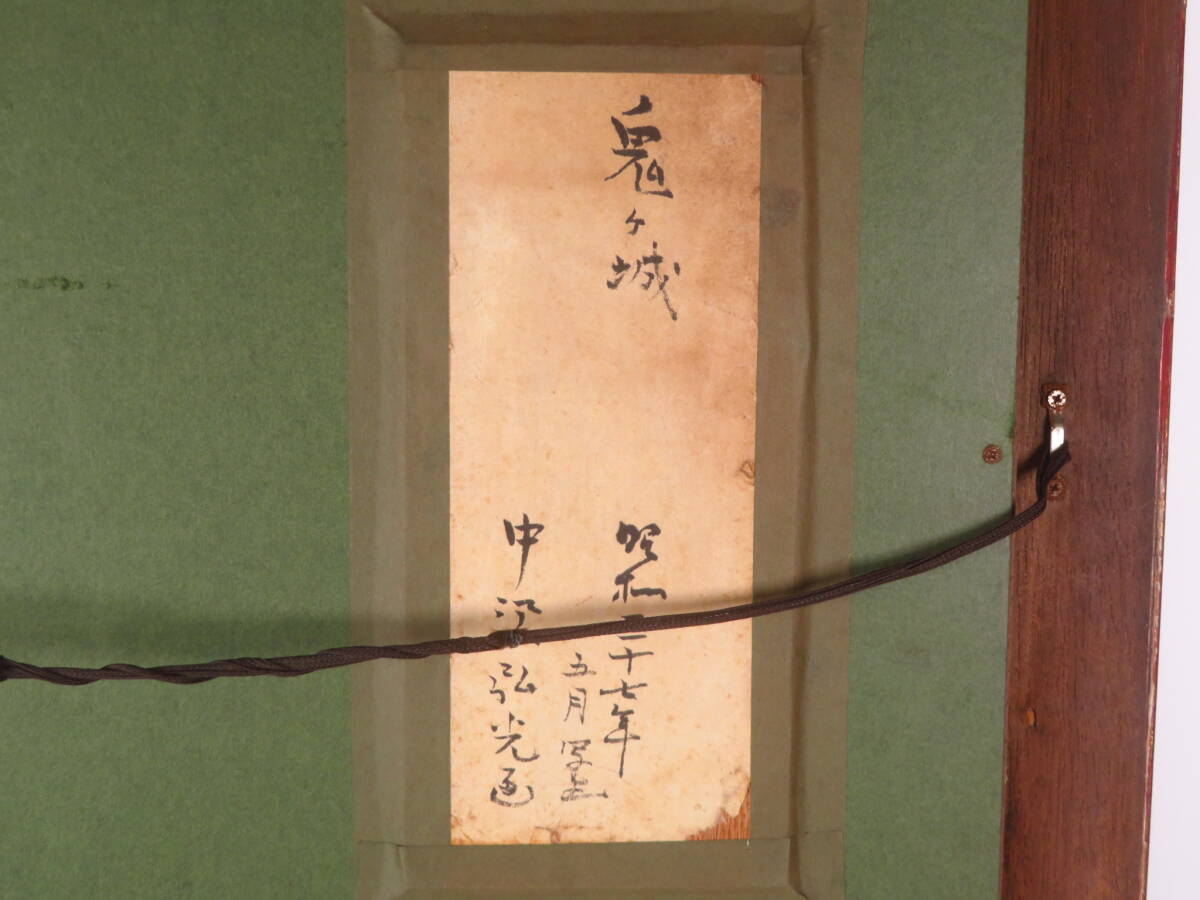 鬼ヶ城
昭和二十七年
五月写生
中澤弘光画